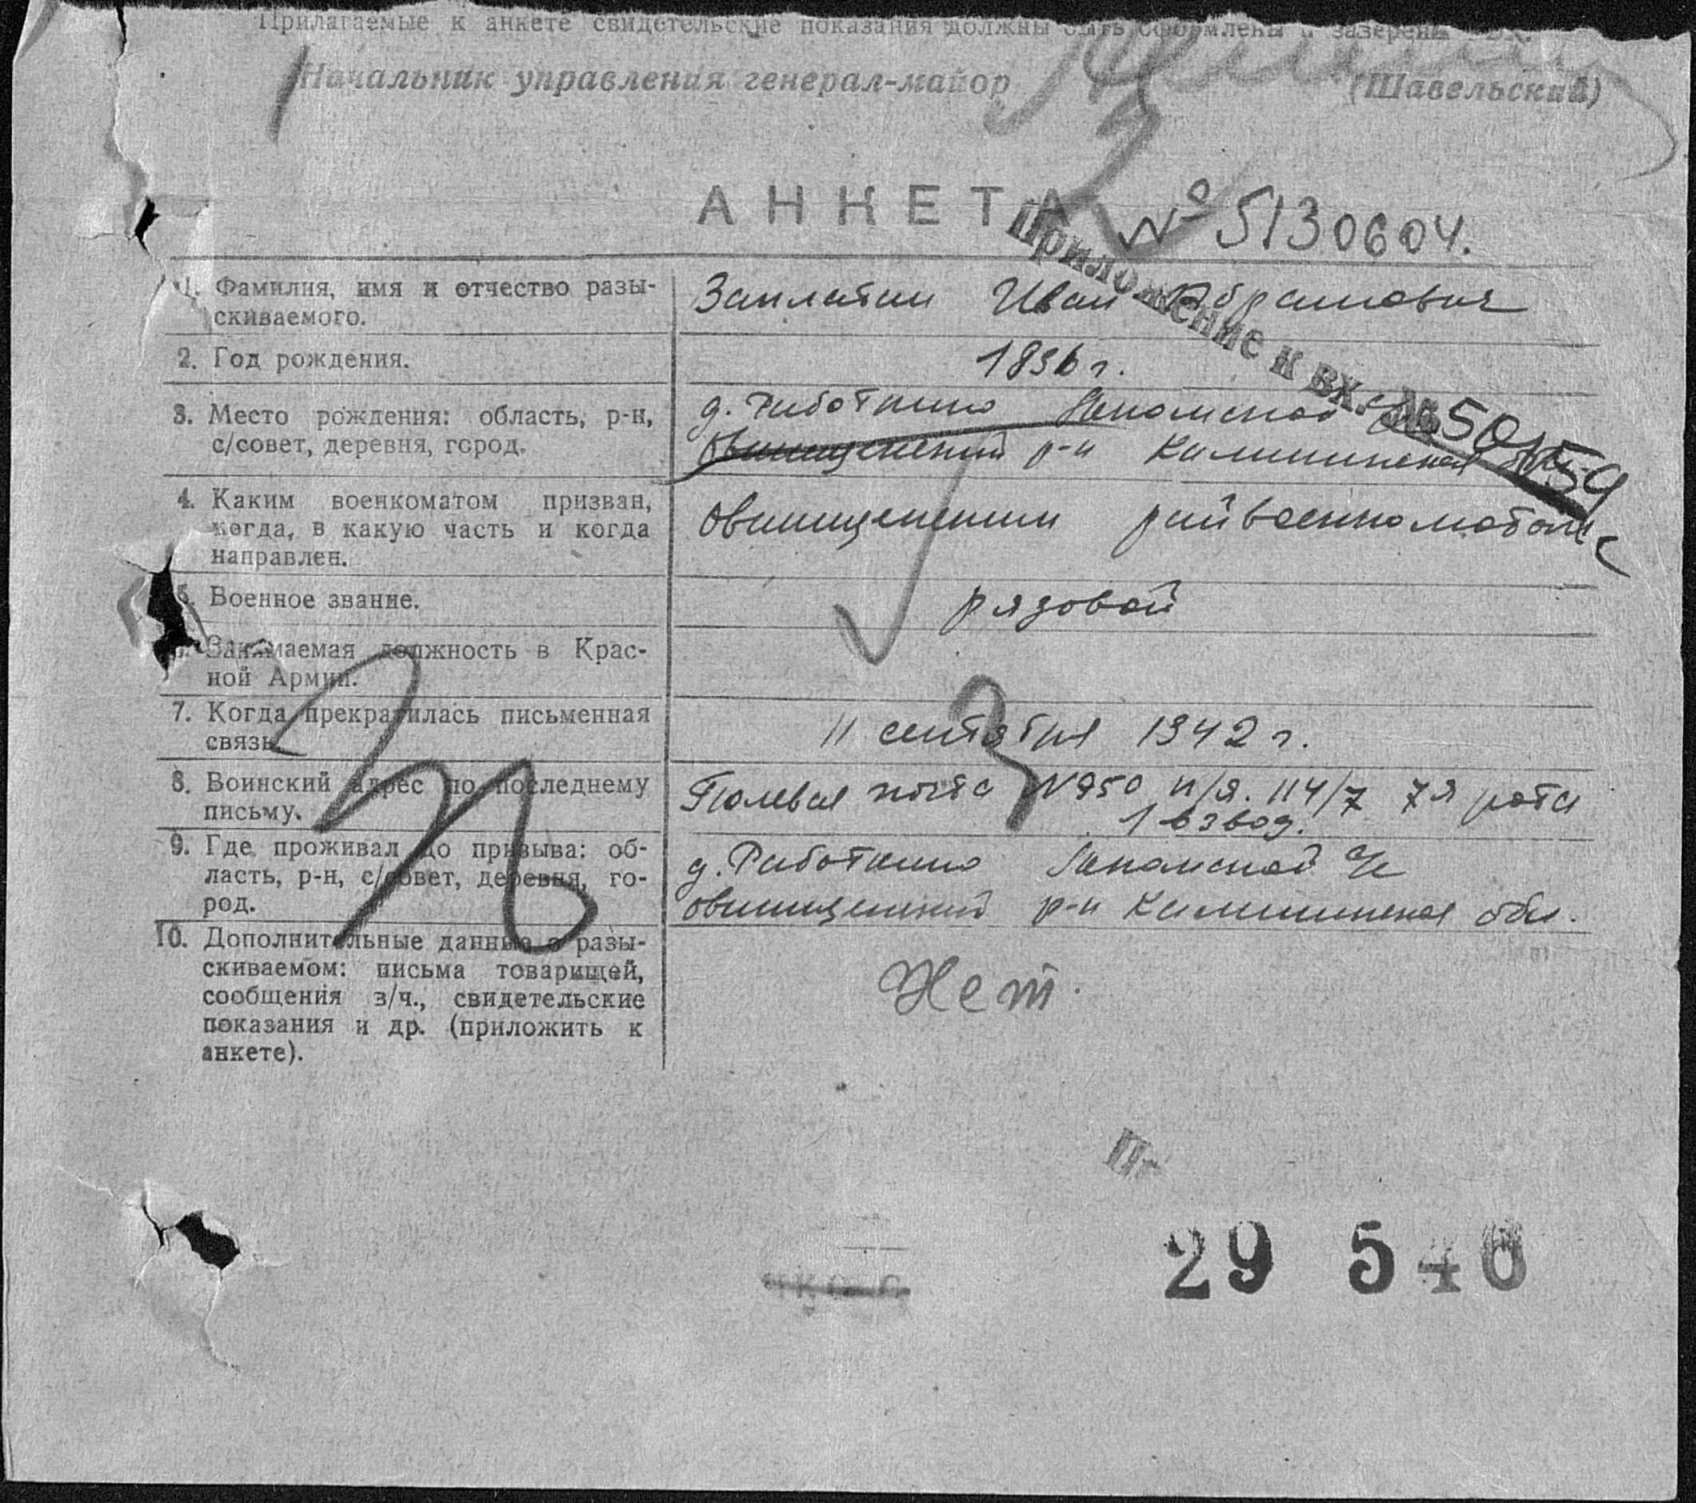 Прилагаемые к анкете свидетельские показания должны быть оформлены и заверены
Начальник управления генерал-майор (Шавельский)
АНКЕТА № 5130604.
Приложение к вх. № 50159
1. Фамилия, имя и отчество разы-
скиваемого.
Заплатин Иван Абрамович
2. Год рождения.
1896 г.
3. Место рождения: область, р-н,
с/совет, деревня, город.
д. Работкино
Овинищенский р-н Калининская обл.
4. Каким военкоматом призван,
когда, в какую часть и когда
направлен.
Овинищенским райвоенкоматом
5. Военное звание.
рядовой
6. Занимаемая должность в Крас-
ной Армии.
7. Когда прекратилась письменная
связь.
11 сентября 1942 г.
8. Воинский адрес по последнему
письму.
Полевая почта №950 п/я. 114/7 7я рота
1 взвод.
9. Где проживал до призыва: об-
ласть, р-н, с/совет, деревня, го-
род.
д. Работкино с/с
Овинищенский р-н Калининская обл.
10. Дополнительные данные о разы-
скиваемом: письма товарищей,
сообщения в/ч., свидетельские
показания и др. (приложить к
анкете).
Нет.
29 540